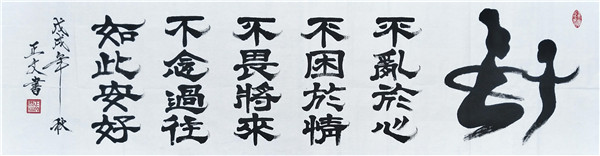 好
不亂於心
不困於情
不畏將來
不念過往
如此安好
戊戌年秋
正文書